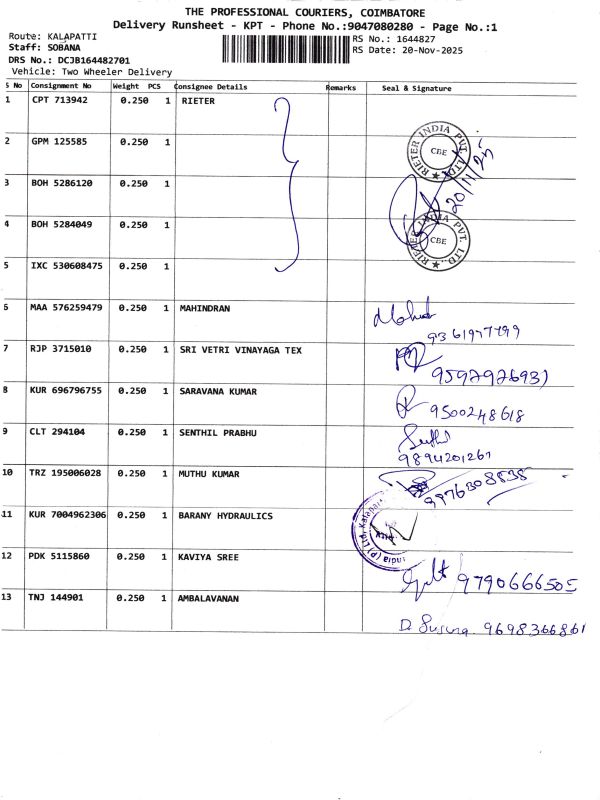 THE PROFESSIONAL COURIERS, COIMBATORE
Delivery Runsheet - KPT - Phone No.:9047080280 - Page No.:1
Route: KALAPATTI RS No.: 1644827
Staff: SOBANA RS Date: 20-Nov-2025
DRS No.: DCJB164482701
Vehicle: Two Wheeler Delivery
S No Consignment No Weight PCS Consignee Details Remarks Seal & Signature
1 CPT 713942 0.250 1 RIETER
2 GPM 125585 0.250 1
RIETER INDIA PVT. LTD. CBE
20/11/25
3 BOH 5286120 0.250 1
4 BOH 5284049 0.250 1
RIETER INDIA PVT. LTD., CBE
5 IXC 530608475 0.250 1
6 MAA 576259479 0.250 1 MAHINDRAN
9361977799
7 RJP 3715010 0.250 1 SRI VETRI VINAYAGA TEX
9597976931
8 KUR 696796755 0.250 1 SARAVANA KUMAR 9500248618
9 CLT 294104 0.250 1 SENTHIL PRABHU Senthil
9894201261
10 TRZ 195006028 0.250 1 MUTHU KUMAR 9976308535
11 KUR 7004962306 0.250 1 BARANY HYDRAULICS
India (P) Ltd, Kalapatti
12 PDK 5115860 0.250 1 KAVIYA SREE
9790666505
13 TNJ 144901 0.250 1 AMBALAVANAN
D. 9698366861